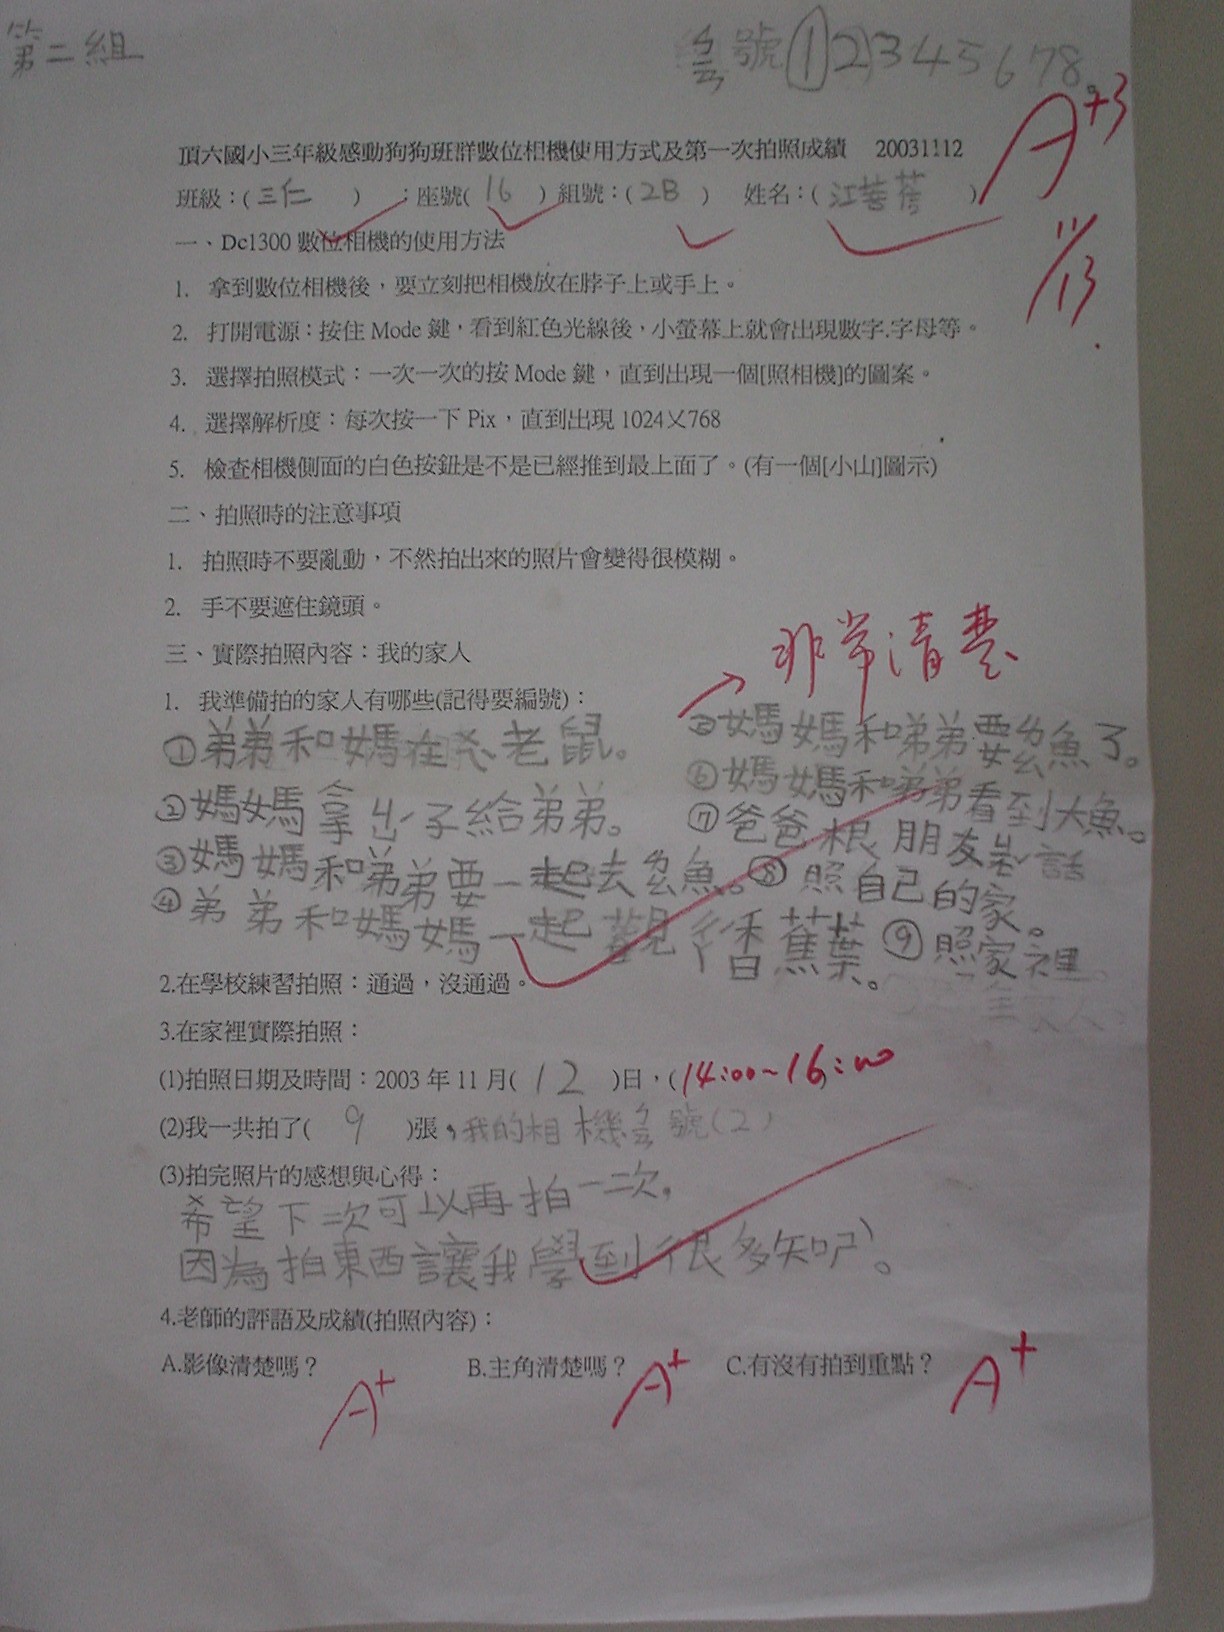 第二組
號①2345678。
A+3
11/13
頂六國小三年級感動狗狗班群數位相機使用方式及第一次拍照成績 20031112
班級：(三仁)；座號(16)組號：(2B) 姓名：(江)
一、Dc1300 數位相機的使用方法
1. 拿到數位相機後，要立刻把相機放在脖子上或手上。
2. 打開電源：按住 Mode 鍵，看到紅色光線後，小螢幕上就會出現數字.字母等。
3. 選擇拍照模式：一次一次的按 Mode 鍵，直到出現一個[照相機]的圖案。
4. 選擇解析度：每次按一下 Pix，直到出現 1024╳768
5. 檢查相機側面的白色按鈕是不是已經推到最上面了。(有一個[小山]圖示)
二、拍照時的注意事項
1. 拍照時不要亂動，不然拍出來的照片會變得很模糊。
2. 手不要遮住鏡頭。
三、實際拍照內容：我的家人
→非常清楚
1. 我準備拍的家人有哪些(記得要編號)：
①弟弟和媽在 老鼠。
②媽媽拿 子給弟弟。
③媽媽和弟弟要一起去 魚。
④弟弟和媽媽一起觀 香蕉葉。
⑤媽媽和弟弟要 魚了。
⑥媽媽和弟弟看到大魚。
⑦爸爸根朋友 話
⑧照自己的家。
⑨照家裡
2.在學校練習拍照：通過，沒通過。
3.在家裡實際拍照：
(1)拍照日期及時間：2003 年 11 月(12)日，(14:00~16:00
(2)我一共拍了(9)張，我的相機 號(2)
(3)拍完照片的感想與心得：
希望下次可以再拍一次，
因為拍東西讓我學到很多知 。
4.老師的評語及成績(拍照內容)：
A.影像清楚嗎？ B.主角清楚嗎？ C.有沒有拍到重點？
A+ A+ A+